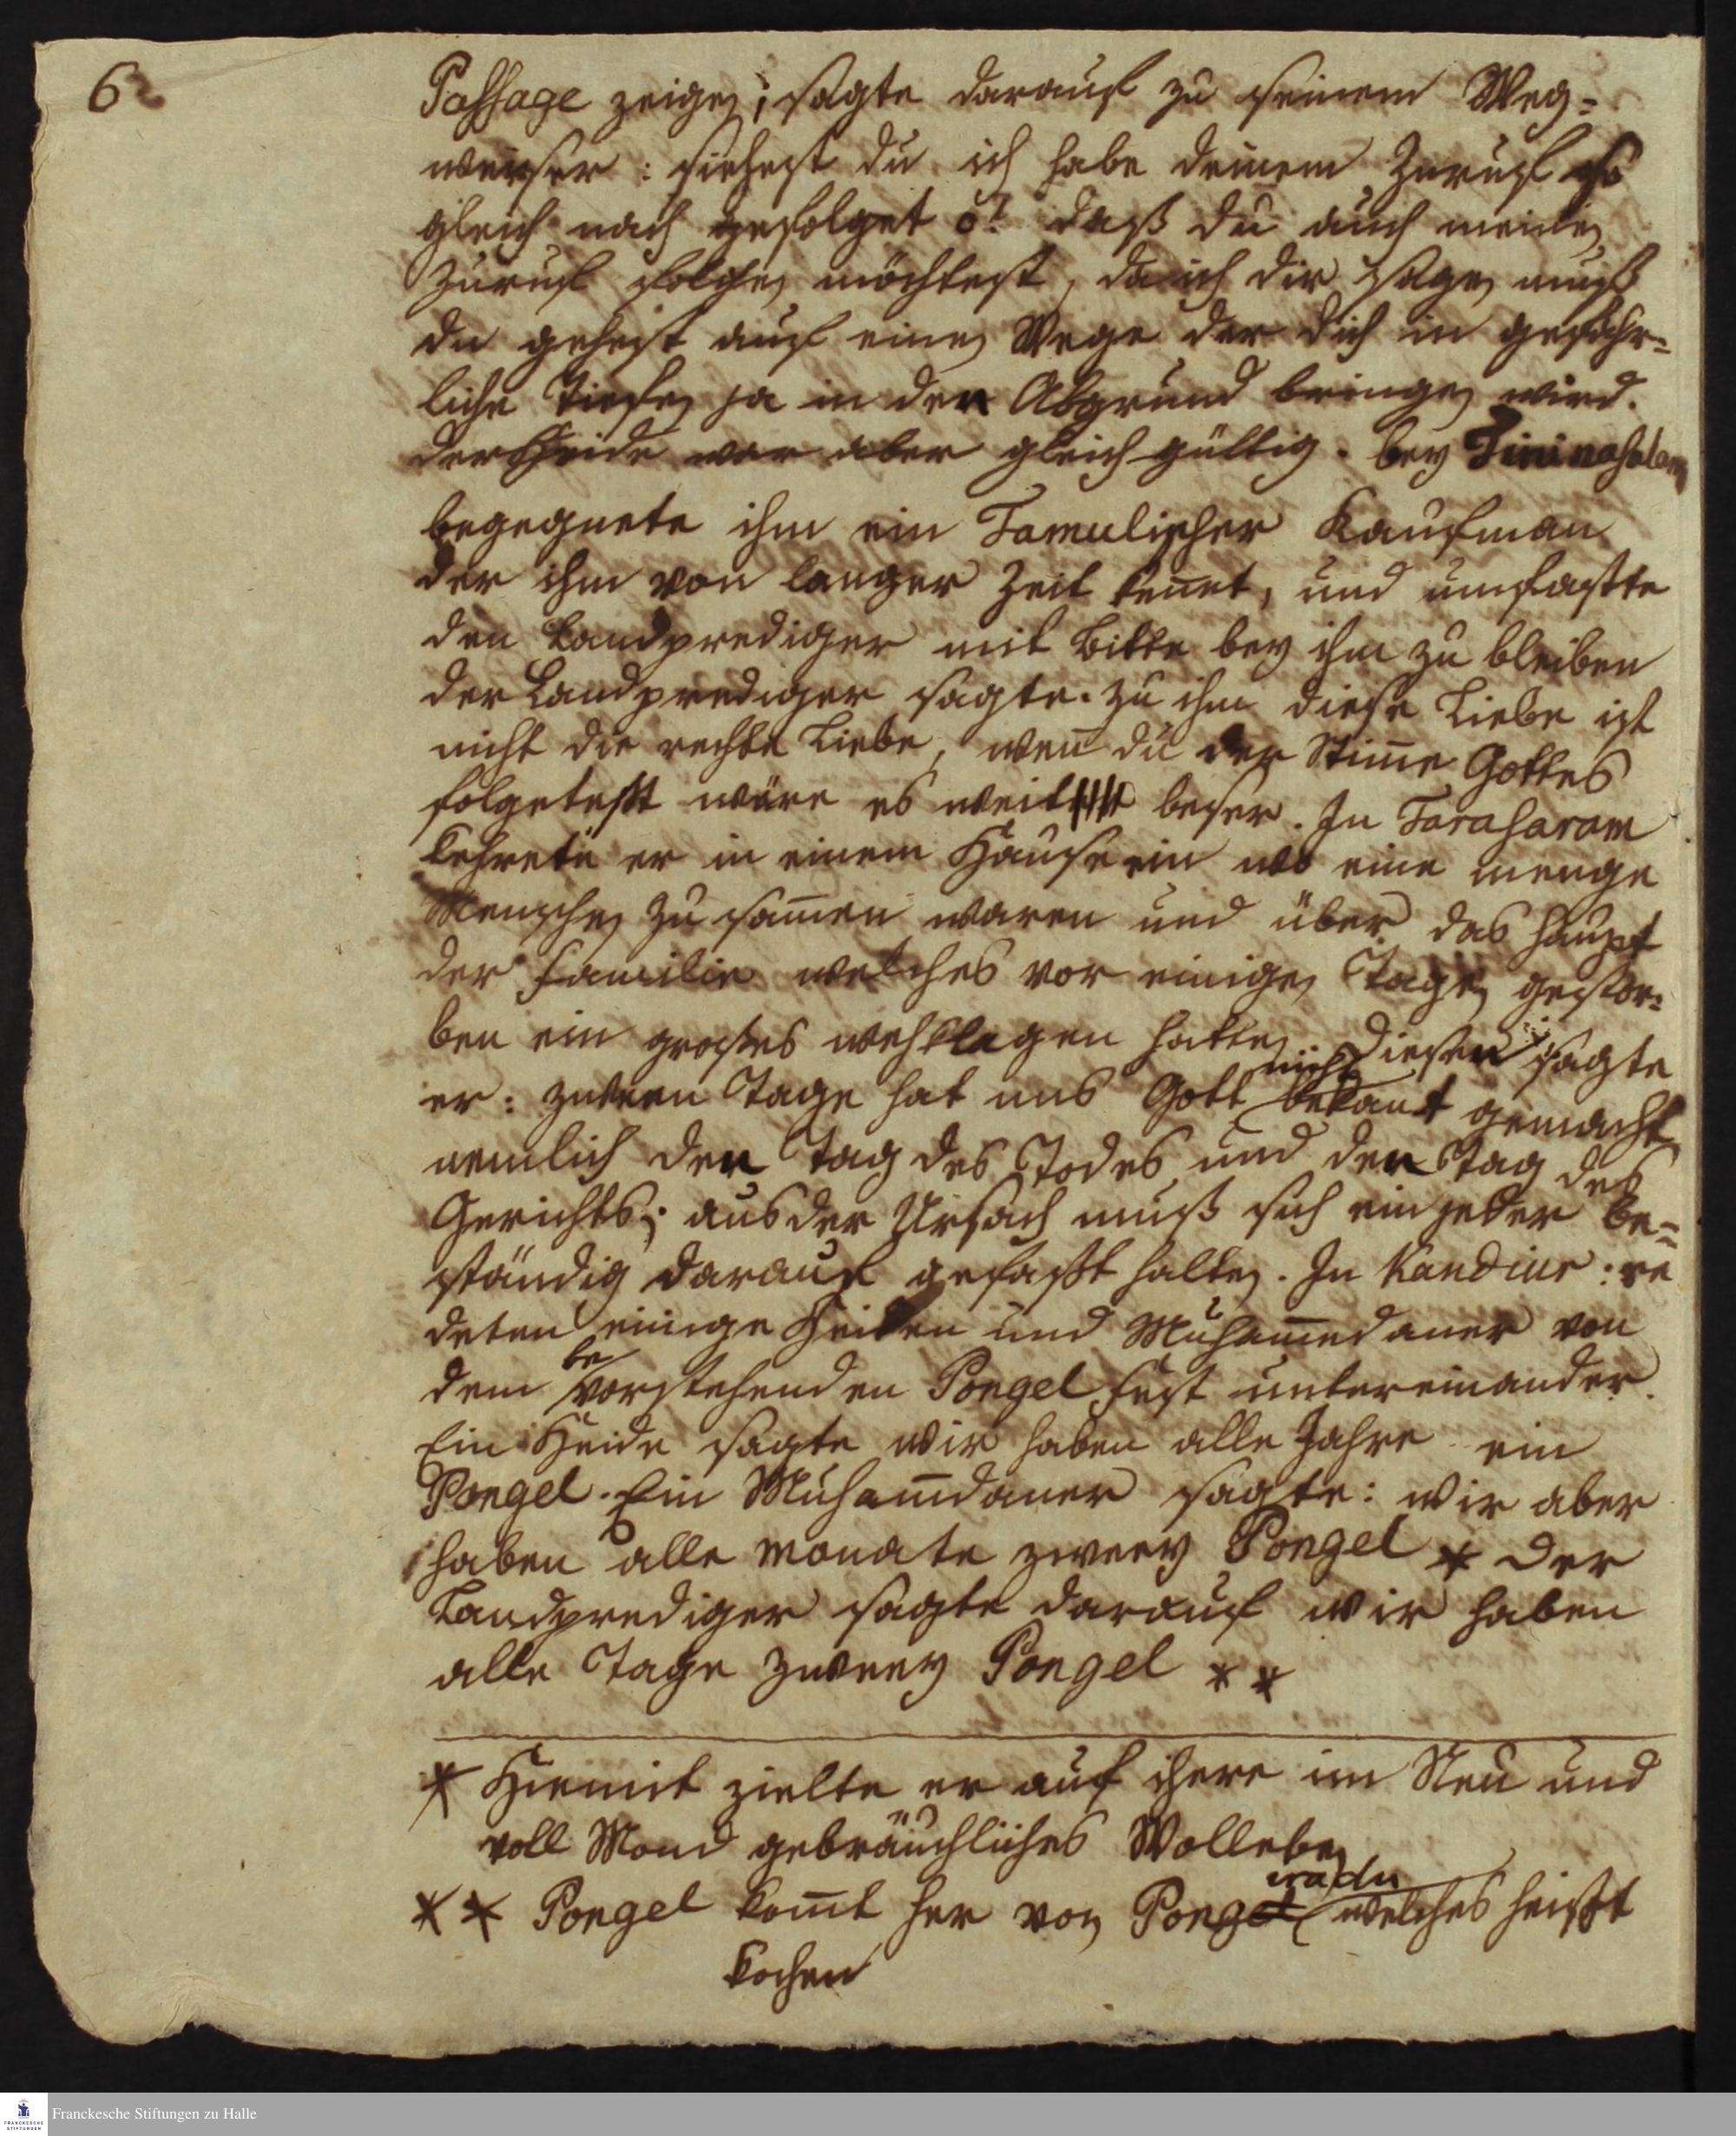 6
Passage zeigen; sagte darauf zu seinem Weg=
weiser: siehest du ich habe deinem Zuruf so
gleich nach gefolget o! daß du auch meinen
Zuruf folgen möchtest, da ich dir sagen muß
du gehest auf einen Wege der dich in gefähr=
liche Tiefen ja in den Abgrund bringen wird.
der Heide war aber gleich gültig. bey
begegnete ihm ein Tamulischer Kaufman
der ihm von langer Zeit kennet, und umfaste
den Landprediger mit Bitte bey ihm zu bleiben
der Landprediger sagte. zu ihm diese Liebe ist
nicht die rechte Liebe, wen̄ du der Stim̄e Gottes
folgetest wäre es weit beser. In Taraharam
kehrete er in einem Hause ein wo eine menge
Menschen zu sam̄en waren und über das Haupt
der Familie welches vor einigen Tagen gestor=
ben ein großes wehklagen hatten. Diesen sagte
er: zween Tage hat uns Gott nicht bekant gemacht
nemlich den Tag des Todes und den Tag des
Gerichts; aus der Ursach muß sich ein jeder be=
ständig darauf gefaßt halten. In Kandiur: re
deten einige Heiden und Muham̄edaner von
dem bevorstehenden Pongel fest untereinander.
Ein Heide sagte wir haben alle Jahre ein
Pongel. Ein Muham̄daner sagte: wir aber
haben alle Monate zweey Pongel * der
Landprediger sagte darauf wir haben
alle Tage zweey Pongel **
* Hiemit zielte er auf ihere im Neu und
voll Mond gebräuchliches Wolleben
** Pongel kom̄t her von Pongradu welches heißt
kochen
Franckesche Stiftungen zu Halle
FRANCKESCHE
STIFTUNGEN